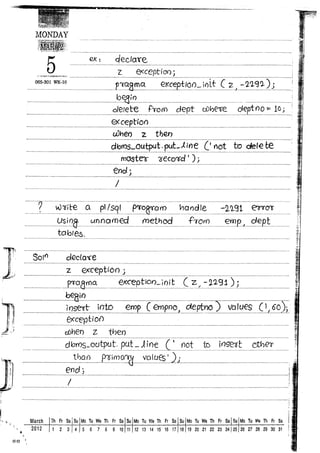 MONDAY
5
065-301 WK-10
ex: declare
z exception;
pragma exception_init (z, -2292);
begin
delete from dept where deptno = 10;
exception
when z then
dbms_output.put_line ('not to delete
master record');
end;
/
? Write a pl/sql program handle -2291 error
Using unnamed method from emp, dept
tables.
Soln declare
z exception;
pragma exception_init (z, -2291);
begin
insert into emp (empno, deptno) values (1,60);
exception
when z then
dbms_output.put_line (' not to insert other
than primary values');
end;
/
March Th Fr Sa Su Mo Tu We Th Fr Sa Su Mo Tu We Th Fr Sa Su Mo Tu We Th Fr Sa Su Mo Tu We Th Fr Sa
2012 1 2 3 4 5 6 7 8 9 10 11 12 13 14 15 16 17 18 19 20 21 22 23 24 25 26 27 28 29 30 31